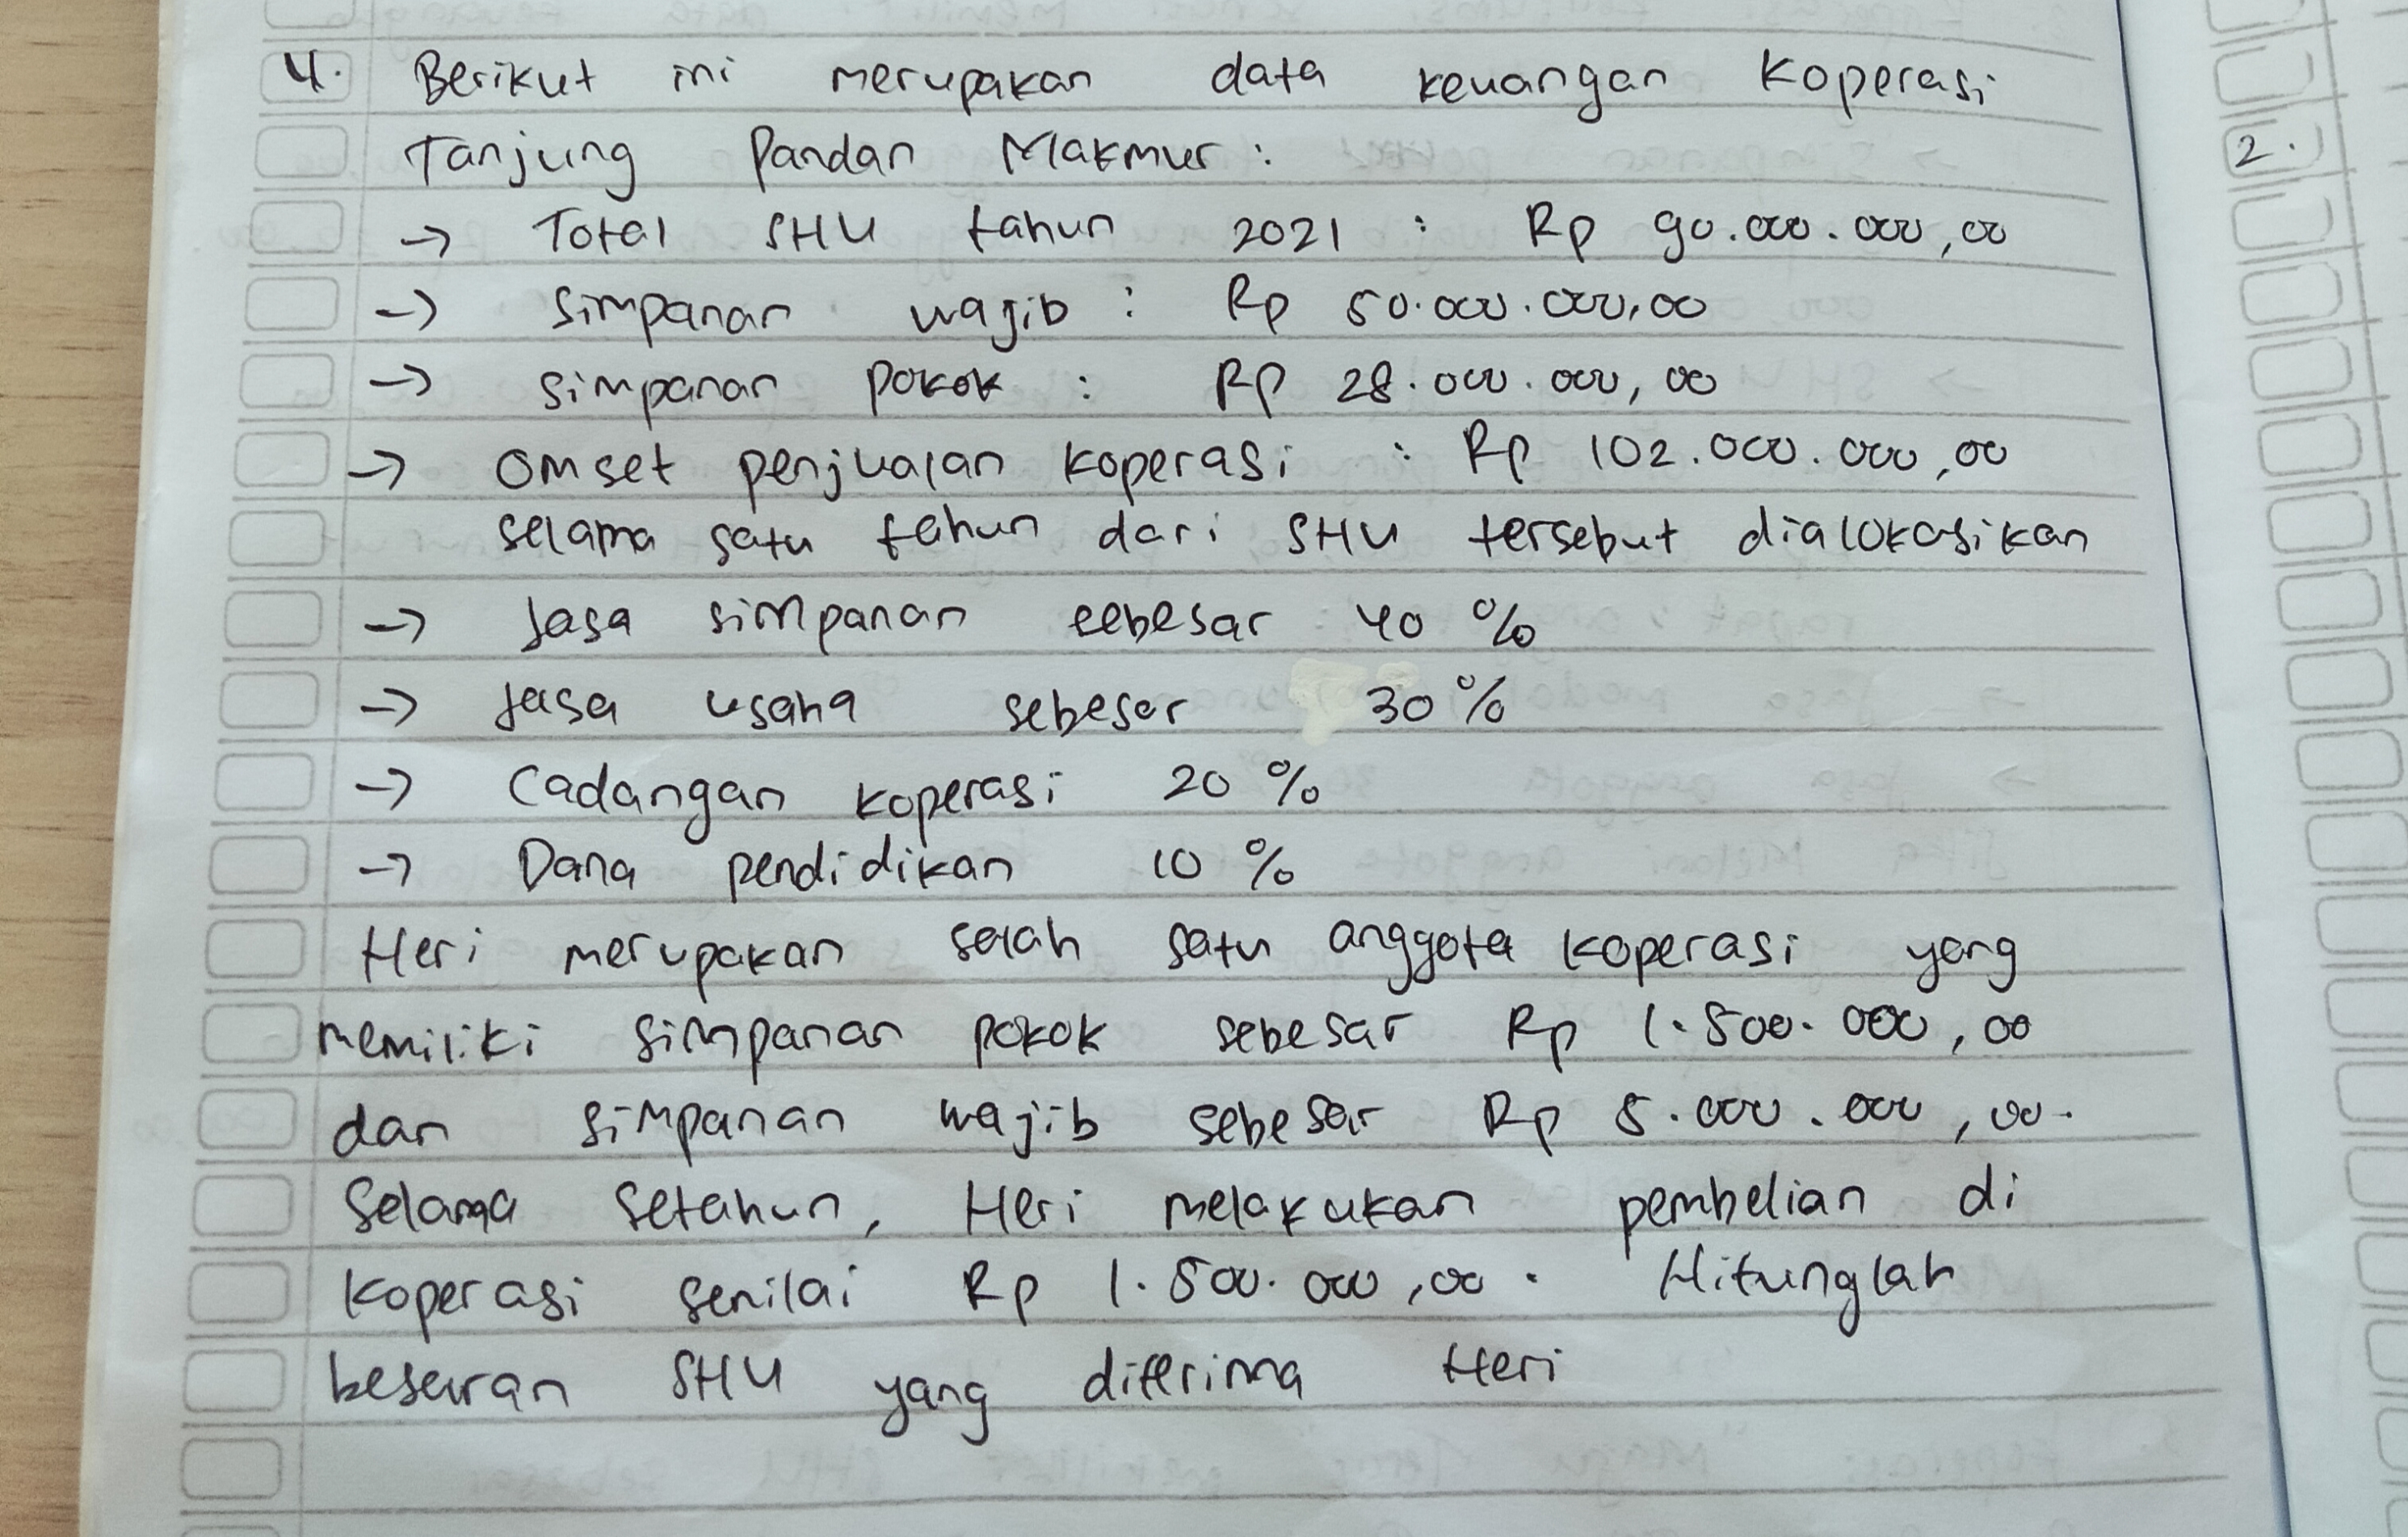 4. Berikut ini merupakan data keuangan Koperasi
Tanjung Pandan Makmur :
→ Total SHU tahun 2021 : Rp 90.000.000,00
→ Simpanan wajib : Rp 50.000.000,00
→ Simpanan pokok : Rp 28.000.000,00
→ Omset penjualan koperasi : Rp 102.000.000,00
selama satu tahun dari SHU tersebut dialokasikan
→ Jasa simpanan sebesar 40 %
→ Jasa usaha sebesar 30 %
→ Cadangan koperasi 20 %
→ Dana pendidikan 10 %
Heri merupakan salah satu anggota koperasi yang
memiliki simpanan pokok sebesar Rp 1.500.000,00
dan simpanan wajib sebesar Rp 5.000.000,00.
Selama setahun, Heri melakukan pembelian di
koperasi senilai Rp 1.500.000,00. Hitunglah
besaran SHU yang diterima Heri
2.